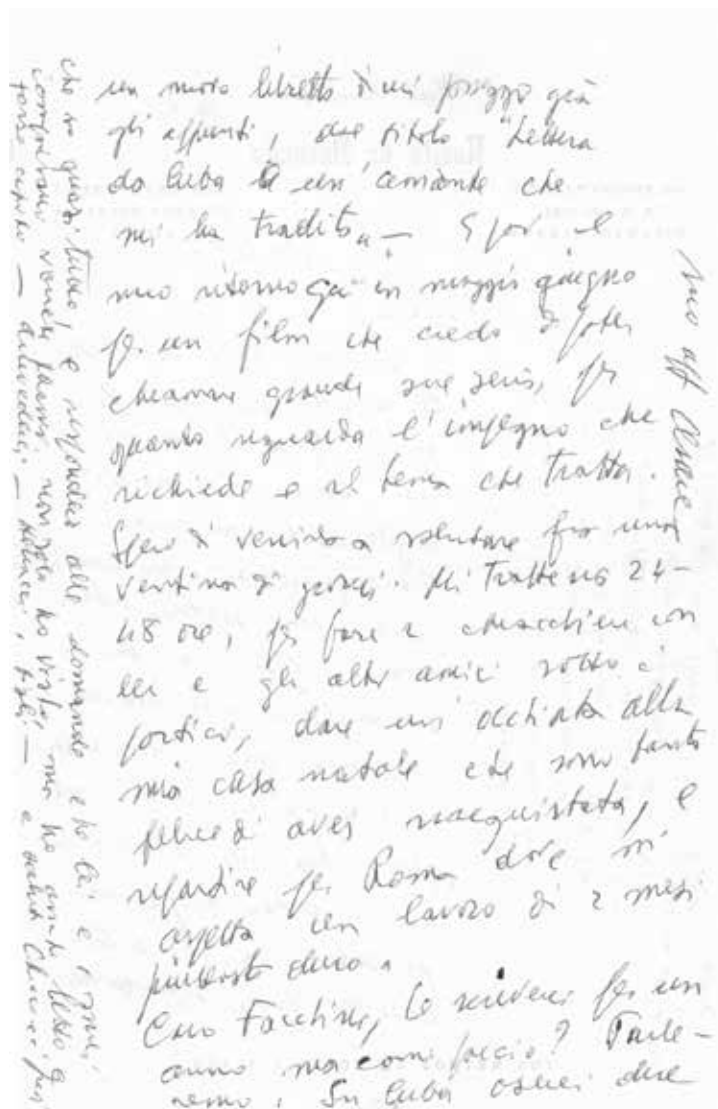 un nuovo libretto di cui porgo già
gli appunti, dal titolo "Lettera
da Cuba a un'amante che
mi ha tradito" —
mio ritorno qui in maggio giugno
per un film che credo di poter
chiamare grande per
quanto riguarda l'impegno che
richiede e il tema che tratta.
Spero di venirvi a salutare fra una
ventina di giorni. Mi tratterrò 24-
48 ore, per fare 2 chiacchiere con
lei e gli altri amici sotto i
portici, dare un'occhiata alla
mia casa natale che sono tanto
felice di aver riacquistata, e
ripartire per Roma dove mi
aspetta un lavoro di 2 mesi
piuttosto duro.
Caro le scriverei per un
anno ma come faccio? Parle-
remo. Su Cuba oserei dire
che so quasi tutto, e rispondere alle domande che lei e i suoi
non solo ho visto, ma ho anche letto e
forse capito — Arrivederci — e saluti
suo aff Cesare